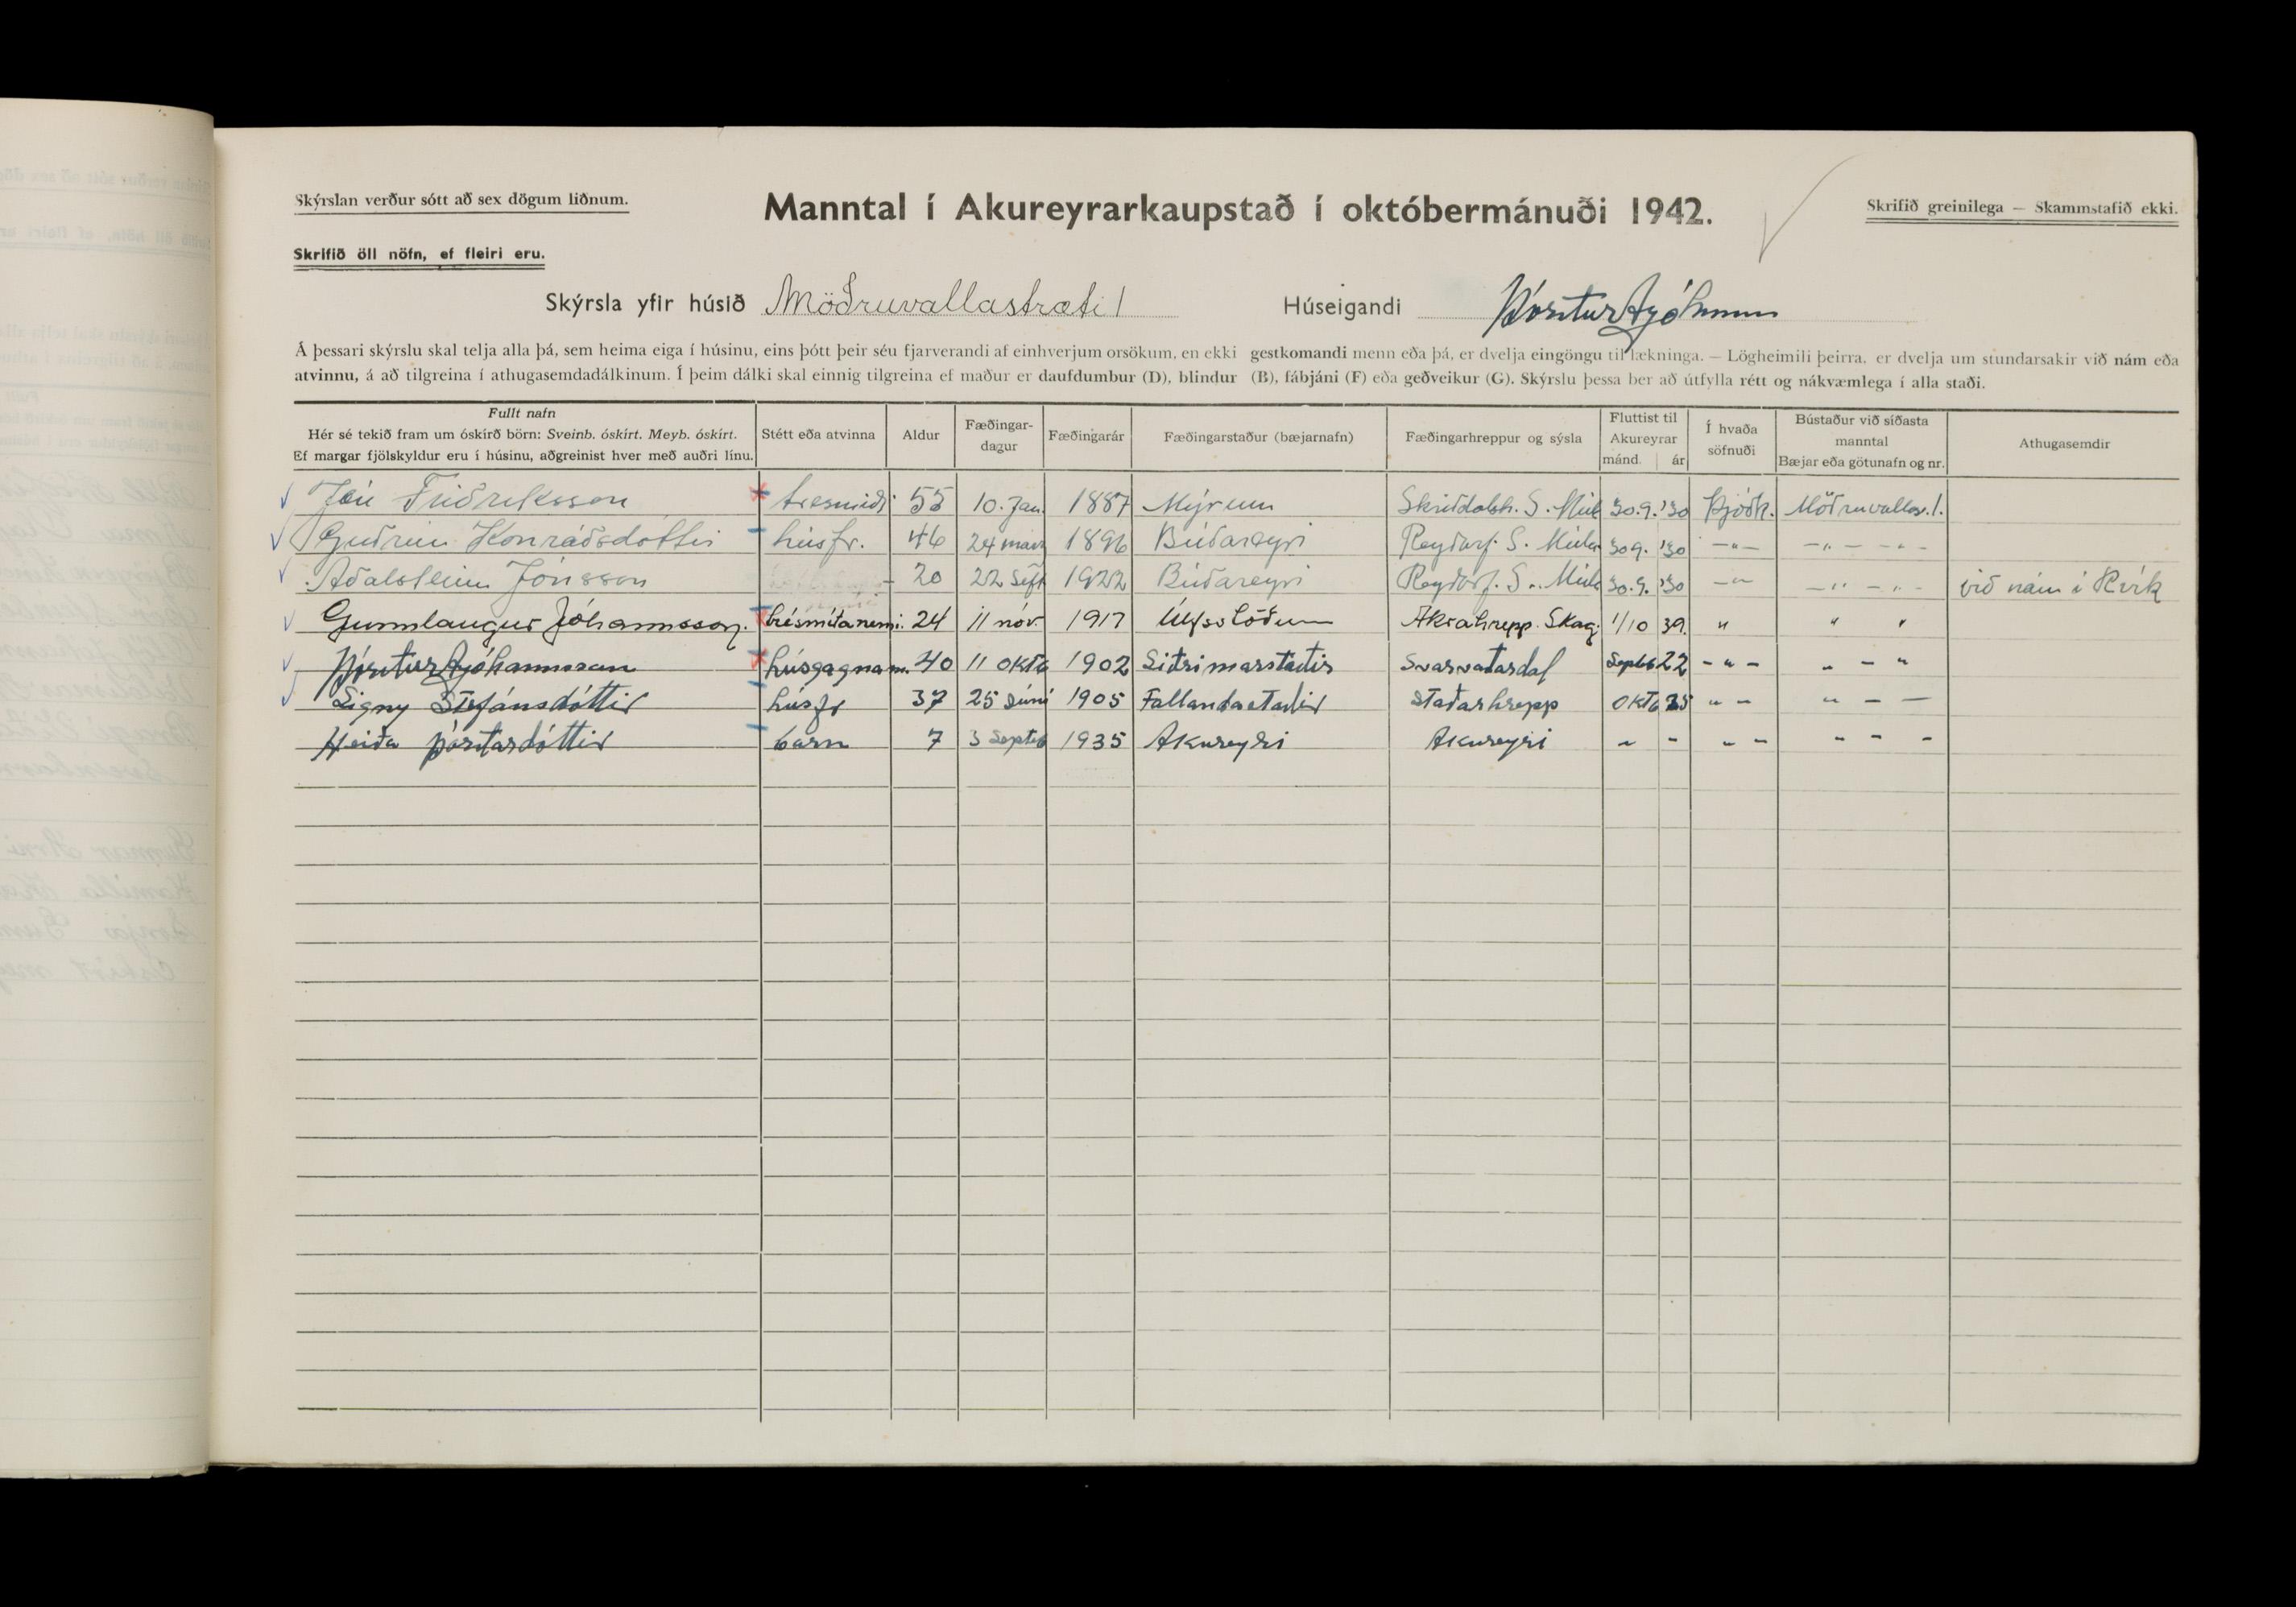 Skýrslan verður sótt að sex dögum liðnum.
Manntal í Akureyrarkaupstað í októbermánuði 1942.
Skrifið greinilega — Skammstafið ekki.
Skrifið öll nöfn, ef fleiri eru.
Skýrsla yfir húsið Möðruvallastræti 1 Húseigandi
Á þessari skýrslu skal telja alla þá, sem heima eiga í húsinu, eins þótt þeir séu fjarverandi af einhverjum orsökum, en ekki gestkomandi menn eða þá, er dvelja eingöngu til lækninga. — Lögheimili þeirra, er dvelja um stundarsakir við nám eða
atvinnu, á að tilgreina í athugasemdadálkinum. Í þeim dálki skal einnig tilgreina ef maður er daufdumbur (D), blindur (B), fábjáni (F) eða geðveikur (G). Skýrslu þessa ber að útfylla rétt og nákvæmlega í alla staði.
Fullt nafn
Hér sé tekið fram um óskírð börn: Sveinb. óskírt. Meyb. óskírt.
Ef margar fjölskyldur eru í húsinu, aðgreinist hver með auðri línu.
Stétt eða atvinna
Aldur
Fæðingar-
dagur
Fæðingarár
Fæðingarstaður (bæjarnafn)
Fæðingarhreppur og sýsla
Fluttist til
Akureyrar
mánd. ár
Í hvaða
söfnuði
Bústaður við síðasta
manntal
Bæjar eða götunafn og nr.
Athugasemdir
Jón Friðriksson tresmiði 55 10. Jan. 1887 Mýrum Skriðdalsh. S. Múl 30.9. '30 Þjóðk. Möðruvallas. 1.
Guðrún Konráðsdóttir húsfr. 46 24 mars 1896 Búðareyri Reyðarf. S. Múla 30.9. '30 — " — — " — — " —
Aðalsteinn Jónsson - 20 22 Sept 1922 Búðareyri Reyðarf. S. Múla 30.9. '30 — " — " — " - við nám í Rvík
Gunnlaugur Jóhannsson. trésmíðanemi. 24 11 nóv 1917 Úlfsstöðum Akrahrepp. Skag. 1/10 39. " " "
húsgagnam. 40 11 okto 1902 Svarvaðardal Septb 22 - " - " - "
Signy Stefánsdóttir húsfr 37 25 Júní 1905 Staðarhrepp Okto " - " - —
Heiða Þórðardóttir barn 7 3 Septeb 1935 Akureyri Akureyri - - " - " - -